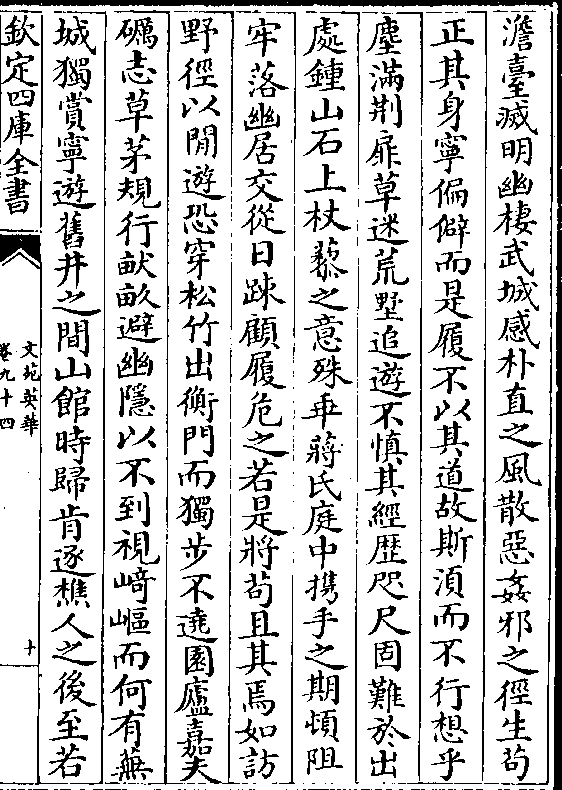 澹臺滅明幽棲武城感朴直之風散惡姦邪之徑生茍
正其身寧偏僻而是履不以其道故斯湏而不行想乎
塵滿荆扉草迷荒墅追遊不慎其經歴咫尺固難於出
處鍾山石上杖藜之意殊乖蔣氏庭中携手之期頓阻
牢落幽居交從日踈顧履危之若是將茍且其焉如訪
野徑以閒遊恐穿松竹出衡門而獨步不遶園廬嘉夫
礪志草茅規行畎畝避幽隱以不到視﨑嶇而何有蕪
城獨賞寧遊舊井之間山館時歸肯逐樵人之後至若
欽定四庫全書
文苑英華
卷九十四
十